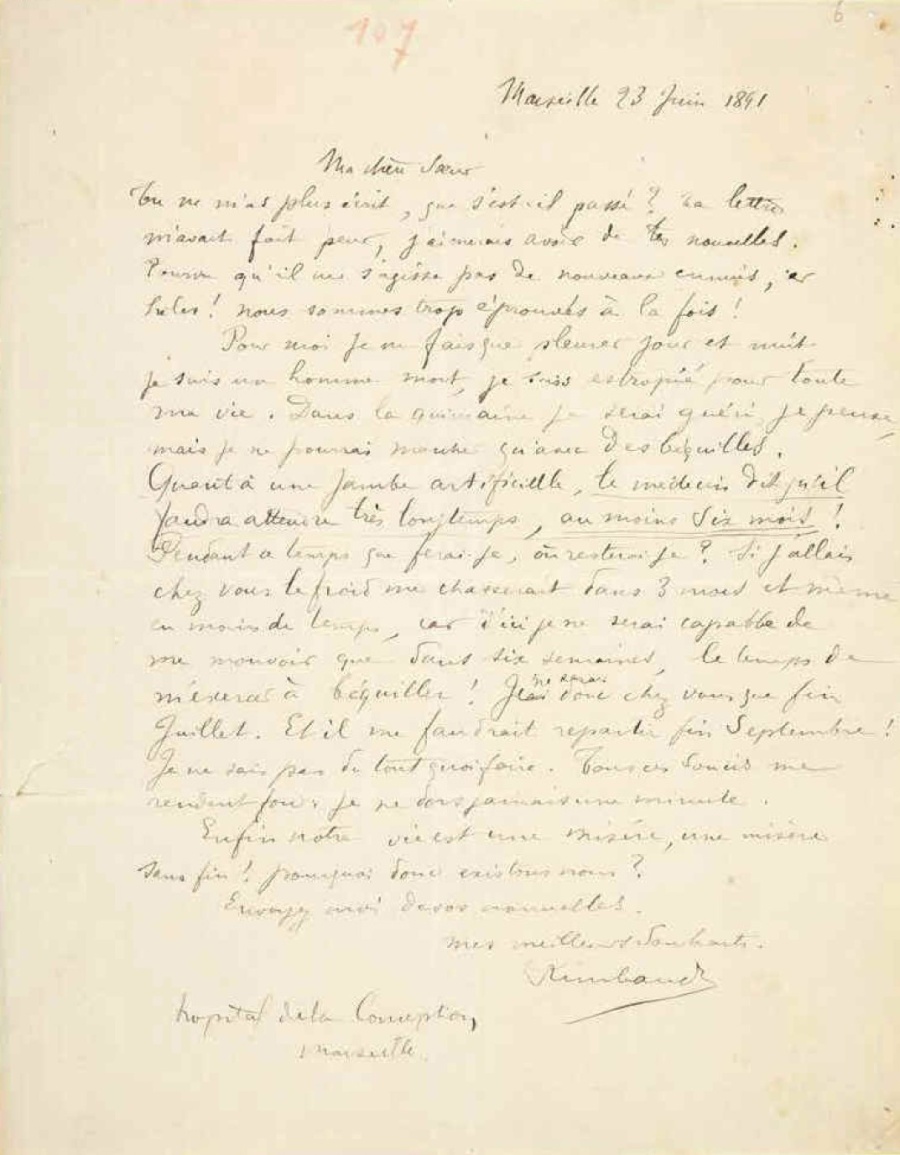 107
6
Marseille 23 Juin 1891
Ma chère Sœur
Tu ne m'as plus écrit, que s'est-il passé? Ta lettre
m'avait fait peur, j'aimerais avoir de tes nouvelles.
Pourvu qu'il ne s'agisse pas de nouveaux ennuis, car
hélas! nous sommes trop éprouvés à la fois!
Pour moi je ne fais que pleurer jour et nuit
je suis un homme mort, je suis estropié pour toute
ma vie. Dans la quinzaine je serai guéri, je pense,
mais je ne pourrai marcher qu'avec des béquilles.
Quant à une jambe artificielle, le médecin dit qu'il
faudra attendre très longtemps, au moins six mois!
Pendant ce temps que ferai-je, où resterai-je? Si j'allais
chez vous le froid me chasserait dans 3 mois et même
en moins de temps, car d'ici je ne serai capable de
me mouvoir que dans six semaines, le temps de
m'exercer à béquiller! Je ne serais donc chez vous que fin
Juillet. Et il me faudrait repartir fin Septembre!
Je ne sais pas du tout quoi faire. Tous ces soucis me
rendent fou: je ne dors jamais une minute.
Enfin notre vie est une misère, une misère
sans fin! pourquoi donc existons nous?
Envoyez moi de vos nouvelles.
Mes meilleurs souhaits.
Rimbaud
hopital de la Conception,
Marseille.